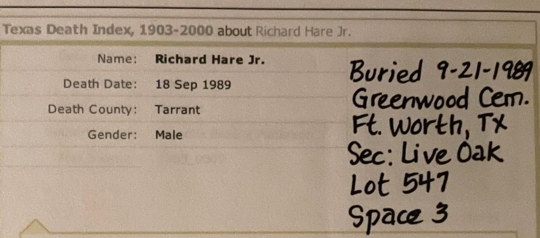 Texas Death Index, 1903-2000 about Richard Hare Jr.
Name: Richard Hare Jr.
Death Date: 18 Sep 1989
Death County: Tarrant
Gender: Male
Buried 9-21-1989
Greenwood Cem.
Ft. Worth, TX
Sec: Live Oak
Lot 547
Space 3